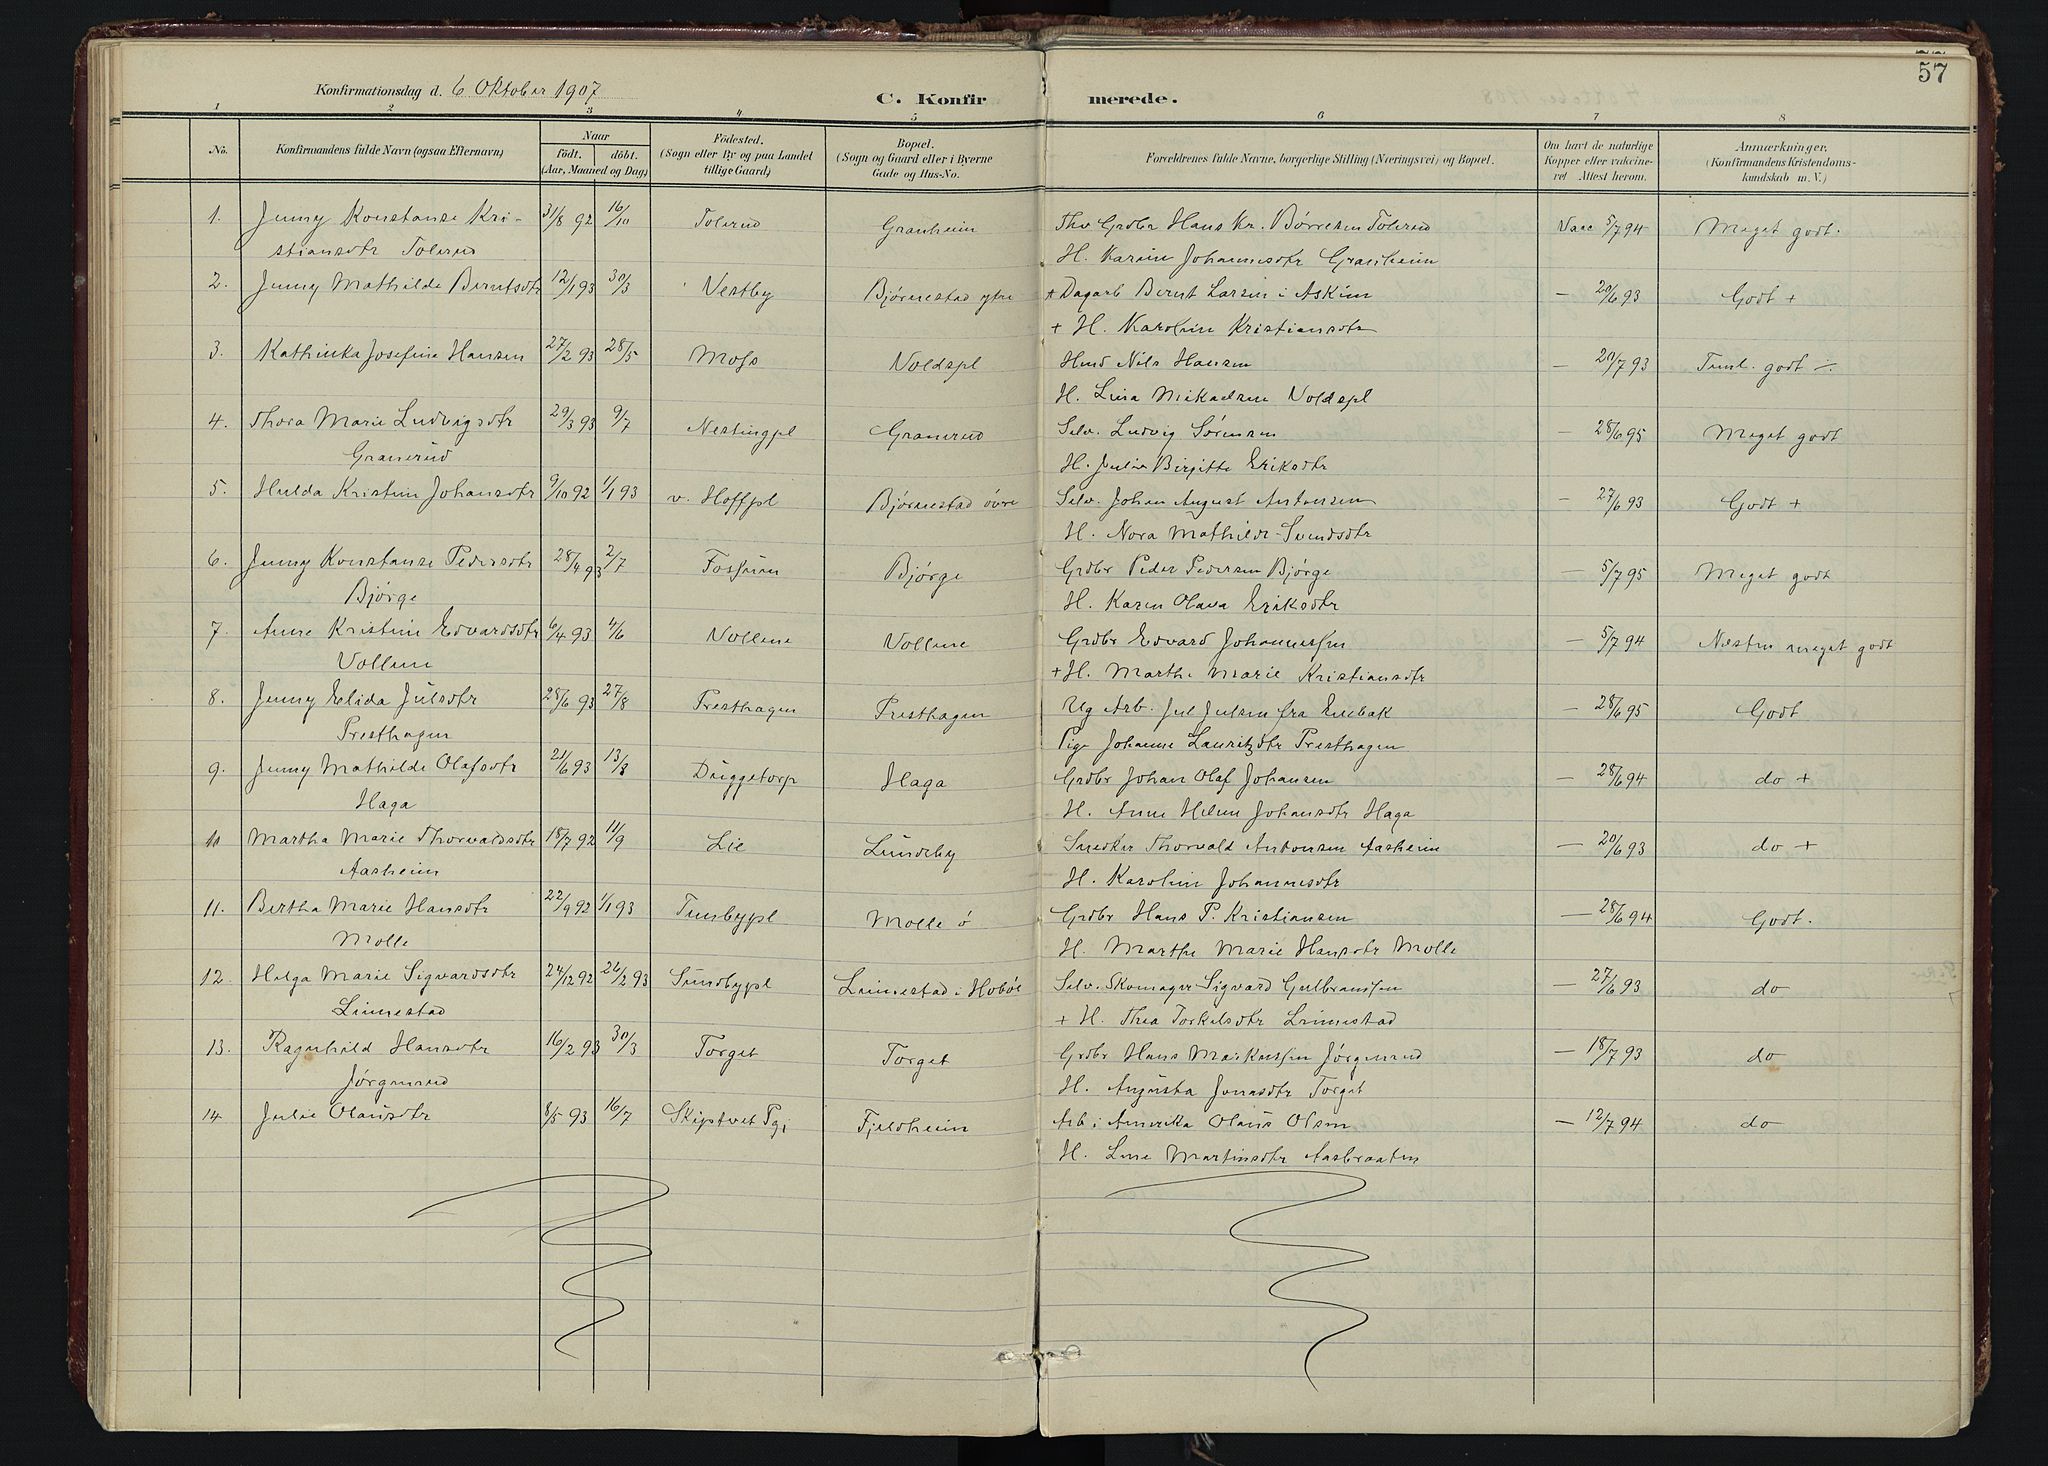 57
Konfirmationsdag d. 6 Oktober 1907
C. Konfirmerede.
1 2 3 4 5 6 7 8
No. Konfirmandens fulde Navn (ogsaa Efternavn) Naar födt. döbt. (Aar, Maaned og Dag) Födested. (Sogn eller By og paa Landet tillige Gaard) Bopæl. (Sogn og Gaard eller i Byerne Gade og Hus-No. Forældrenes fulde Navne, borgerlige Stilling (Næringsvei) og Bopæl. Om havt de naturlige Kopper eller vakcineret Attest herom. Anmærkninger. (Konfirmandens Kristendomskundskab m. V.)
1. Jenny Konstanse Kri- 31/8 92 16/10 Tolerud Granheim Thv Grdbr Hans Kr. Børresen Tolerud Vacc 5/7 94 Meget godt.
stiansdtr Tolerud H. Karin Johannesdtr Granheim
2. Jenny Mathilde Berntsdtr 12/1 93 30/3 Vestby Bjørnestad ytre + Dagarb Bernt Larsen i Askim — 20/6 93 Godt +
+ H. Karolin Kristiansdtr
3. Kathinka Josefine Hansen 27/2 93 28/5 Moss Voldspl Hmd Nils Hansen — 20/7 93 Teml. godt ÷
H. Lina Mikaelsen Voldspl
4. Thora Marie Ludvigsdtr 29/3 93 9/7 Nestingpl Granerud Selv. Ludvig Sørensen — 28/6 95 Meget godt
Granerud H. Julie Birgitte Eriksdtr
5. Hulda Kristin Johansdtr 9/10 92 1/1 93 v. Hoffpl Bjørnestad övre Selv. Johan August Antonsen — 27/6 93 Godt +
H. Nora Mathilde Svendsdtr
6. Jenny Konstanse Pedersdtr 28/4 93 2/7 Fossum Bjørge Grdbr Peder Pedersen Bjørge — 5/7 95 Meget godt
Bjørge H. Karen Olava Eriksdtr
7. Anne Kristine Edvardsdtr 6/4 93 4/6 Vollene Vollene Grdbr Edvard Johannessen — 5/7 94 Næsten meget godt
Vollene + H. Marthe Marie Kristiansdtr
8. Jenny Elida Julsdtr 28/6 93 27/8 Presthagen Presthagen Ug Arb. Jul Julsen fra Enebak — 28/6 95 Godt
Presthagen Pige Johanne Lauritzdtr Presthagen
9. Jenny Mathilde Olafsdtr 21/6 93 13/8 Duggetorp Haga Grdbr Johan Olaf Johansen — 28/6 94 do +
Haga H. Anne Helene Johansdtr Haga
10 Martha Marie Thorvaldsdtr 18/7 92 11/9 Lie Lundeby Snedker Thorvald Antonsen Aasheim — 20/6 93 do +
Aasheim H. Karolin Johannesdtr
11. Bertha Marie Hansdtr 22/9 92 1/1 93 Tunbypl Molle ö Grdbr Hans P. Kristiansen — 28/6 94 Godt.
Molle H. Marthe Marie Hansdtr Molle
12. Helga Marie Sigvardsdtr 24/12 92 26/2 93 Sundbypl Linnestad i Hobøl Selv. Skomager Sigvard Gulbranssen — 27/6 93 do
Linnestad + H. Thea Torkelsdtr Linnestad
13. Ragnhild Hansdtr 16/2 93 30/3 Torget Torget Grdbr Hans Markussen Jørgenrud — 18/7 93 do
Jørgenrud H. Augusta Jensdtr Torget
14. Julie Olausdtr 8/5 93 16/7 Skiptvet Pg, Fjeldheim Arb i Amerika Olaus Olsen — 12/7 94 do
H. Line Martinsdtr Aasbraaten